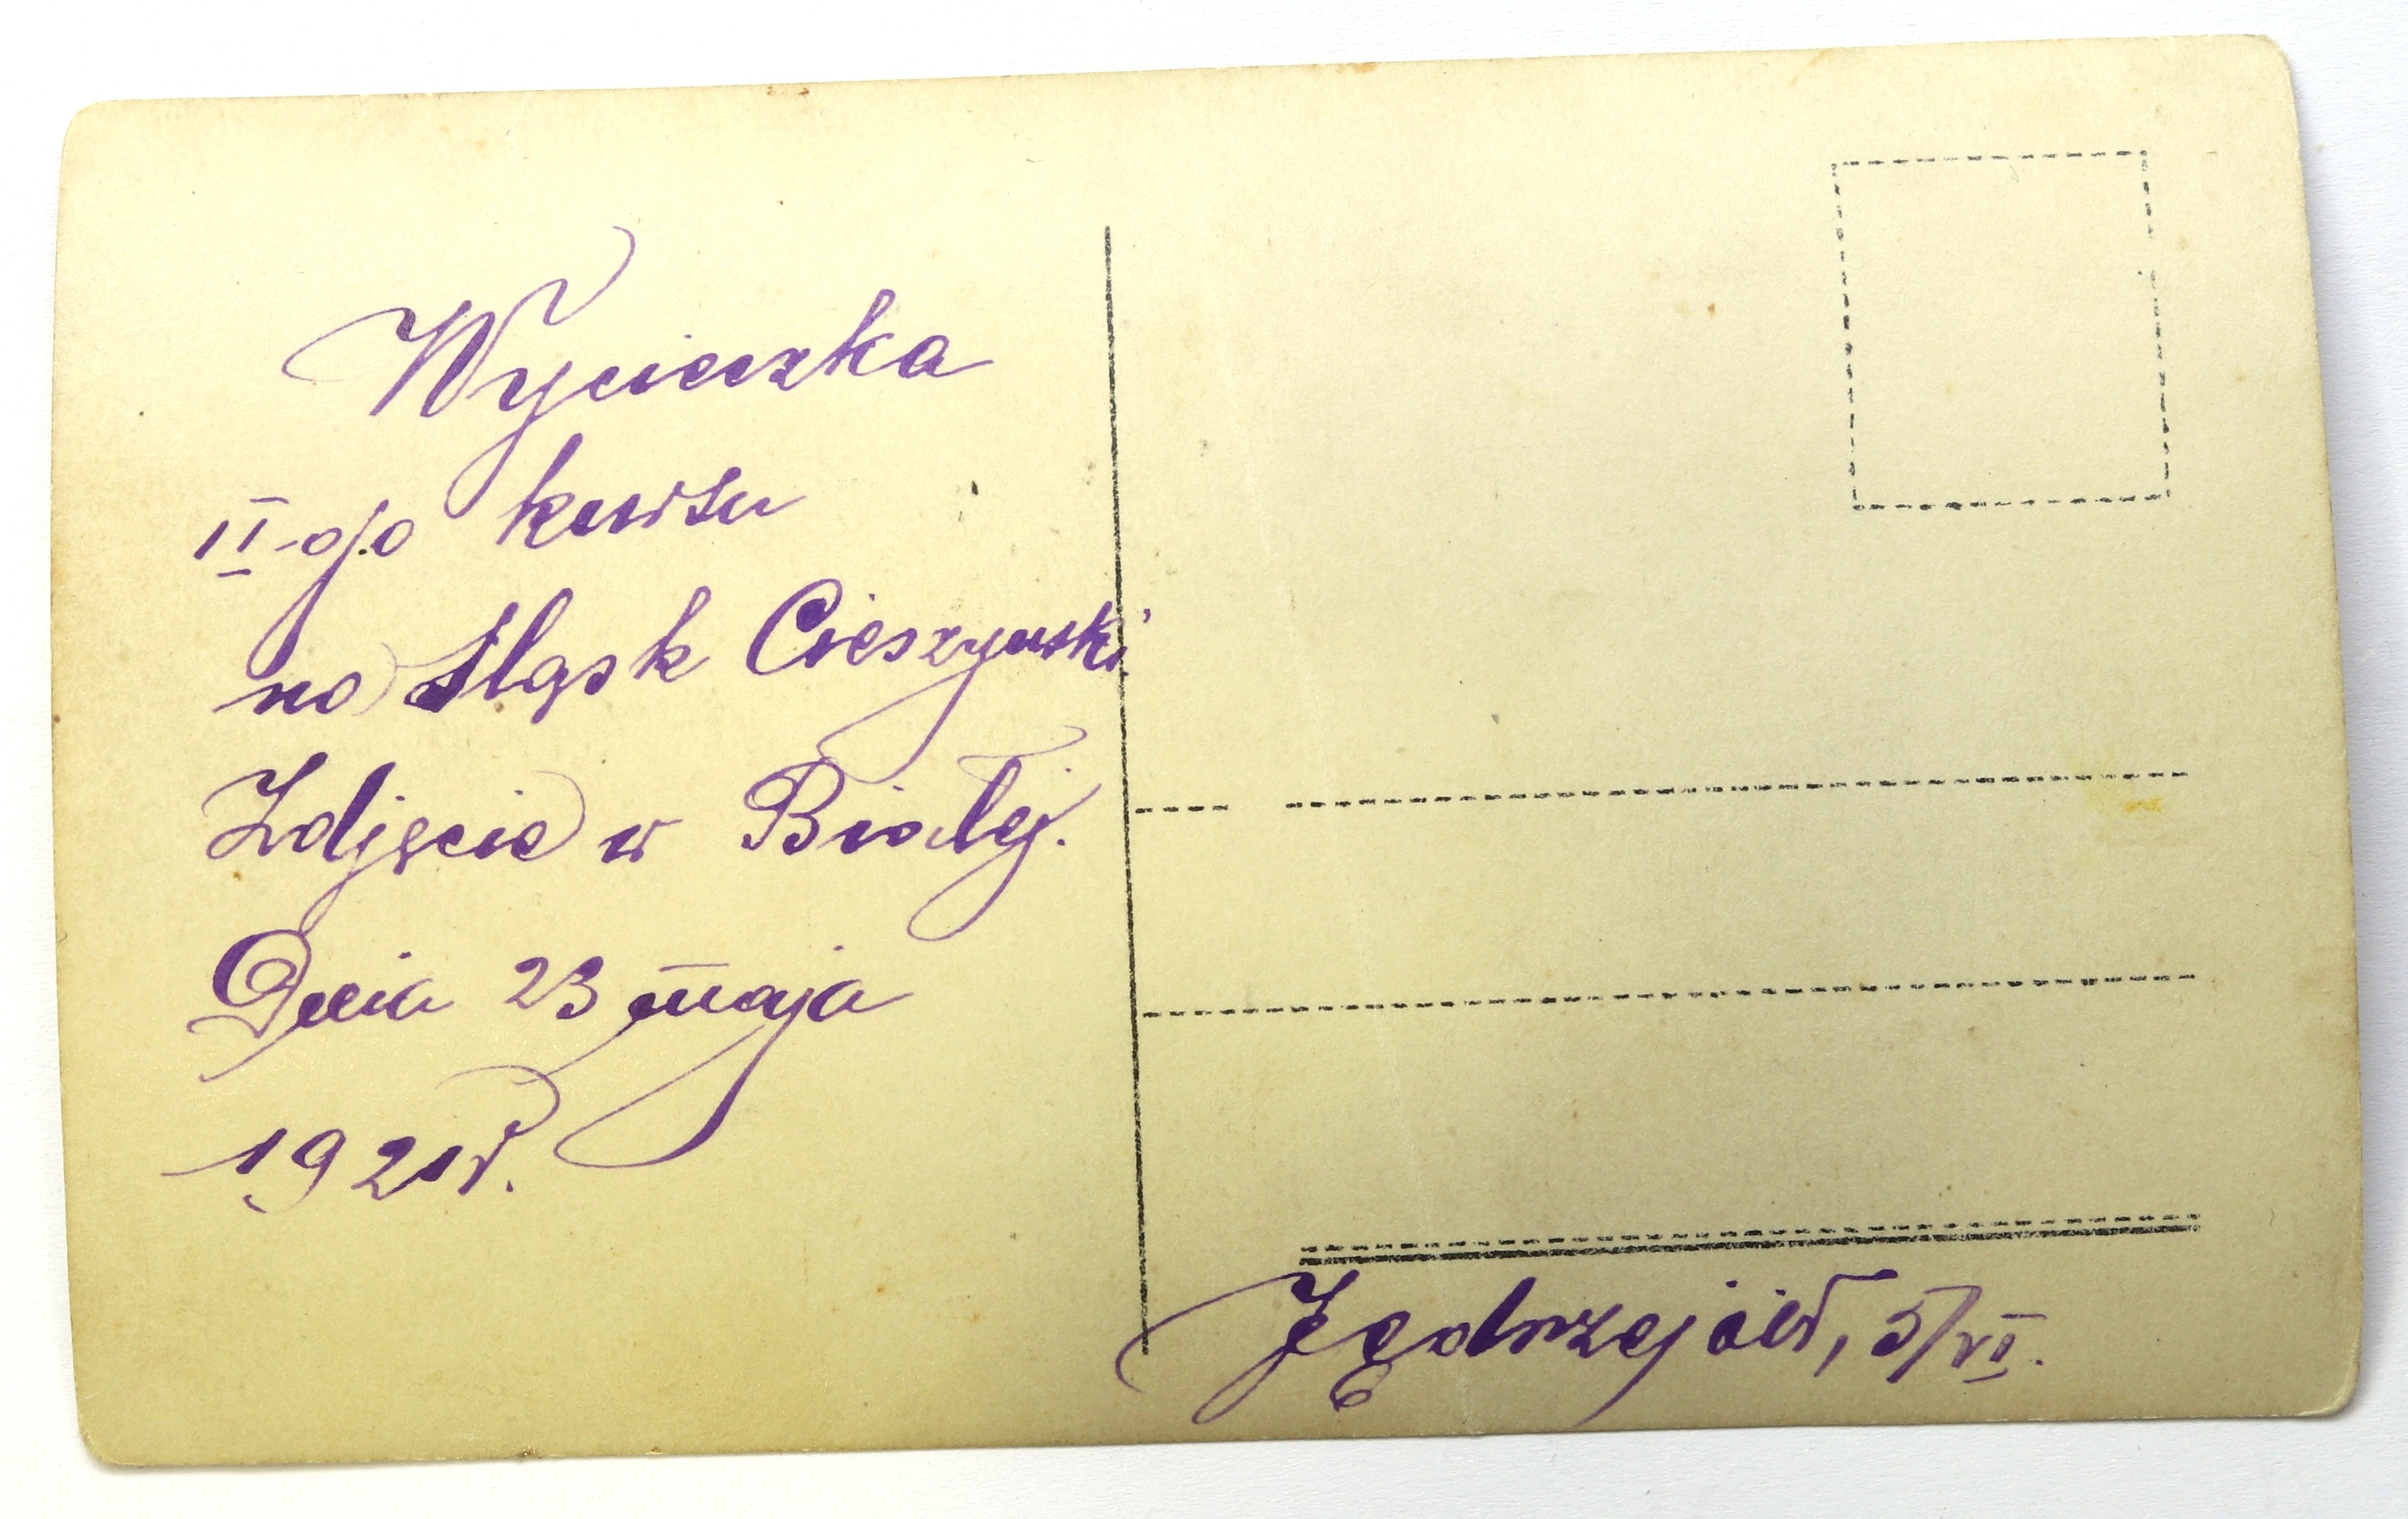 Wycieczka
II-go kursu
na Śląsk Cieszyński
Zdjęcie w Białej.
Dnia 23 maja
1921r.
Jędrzejów, 5/VI.